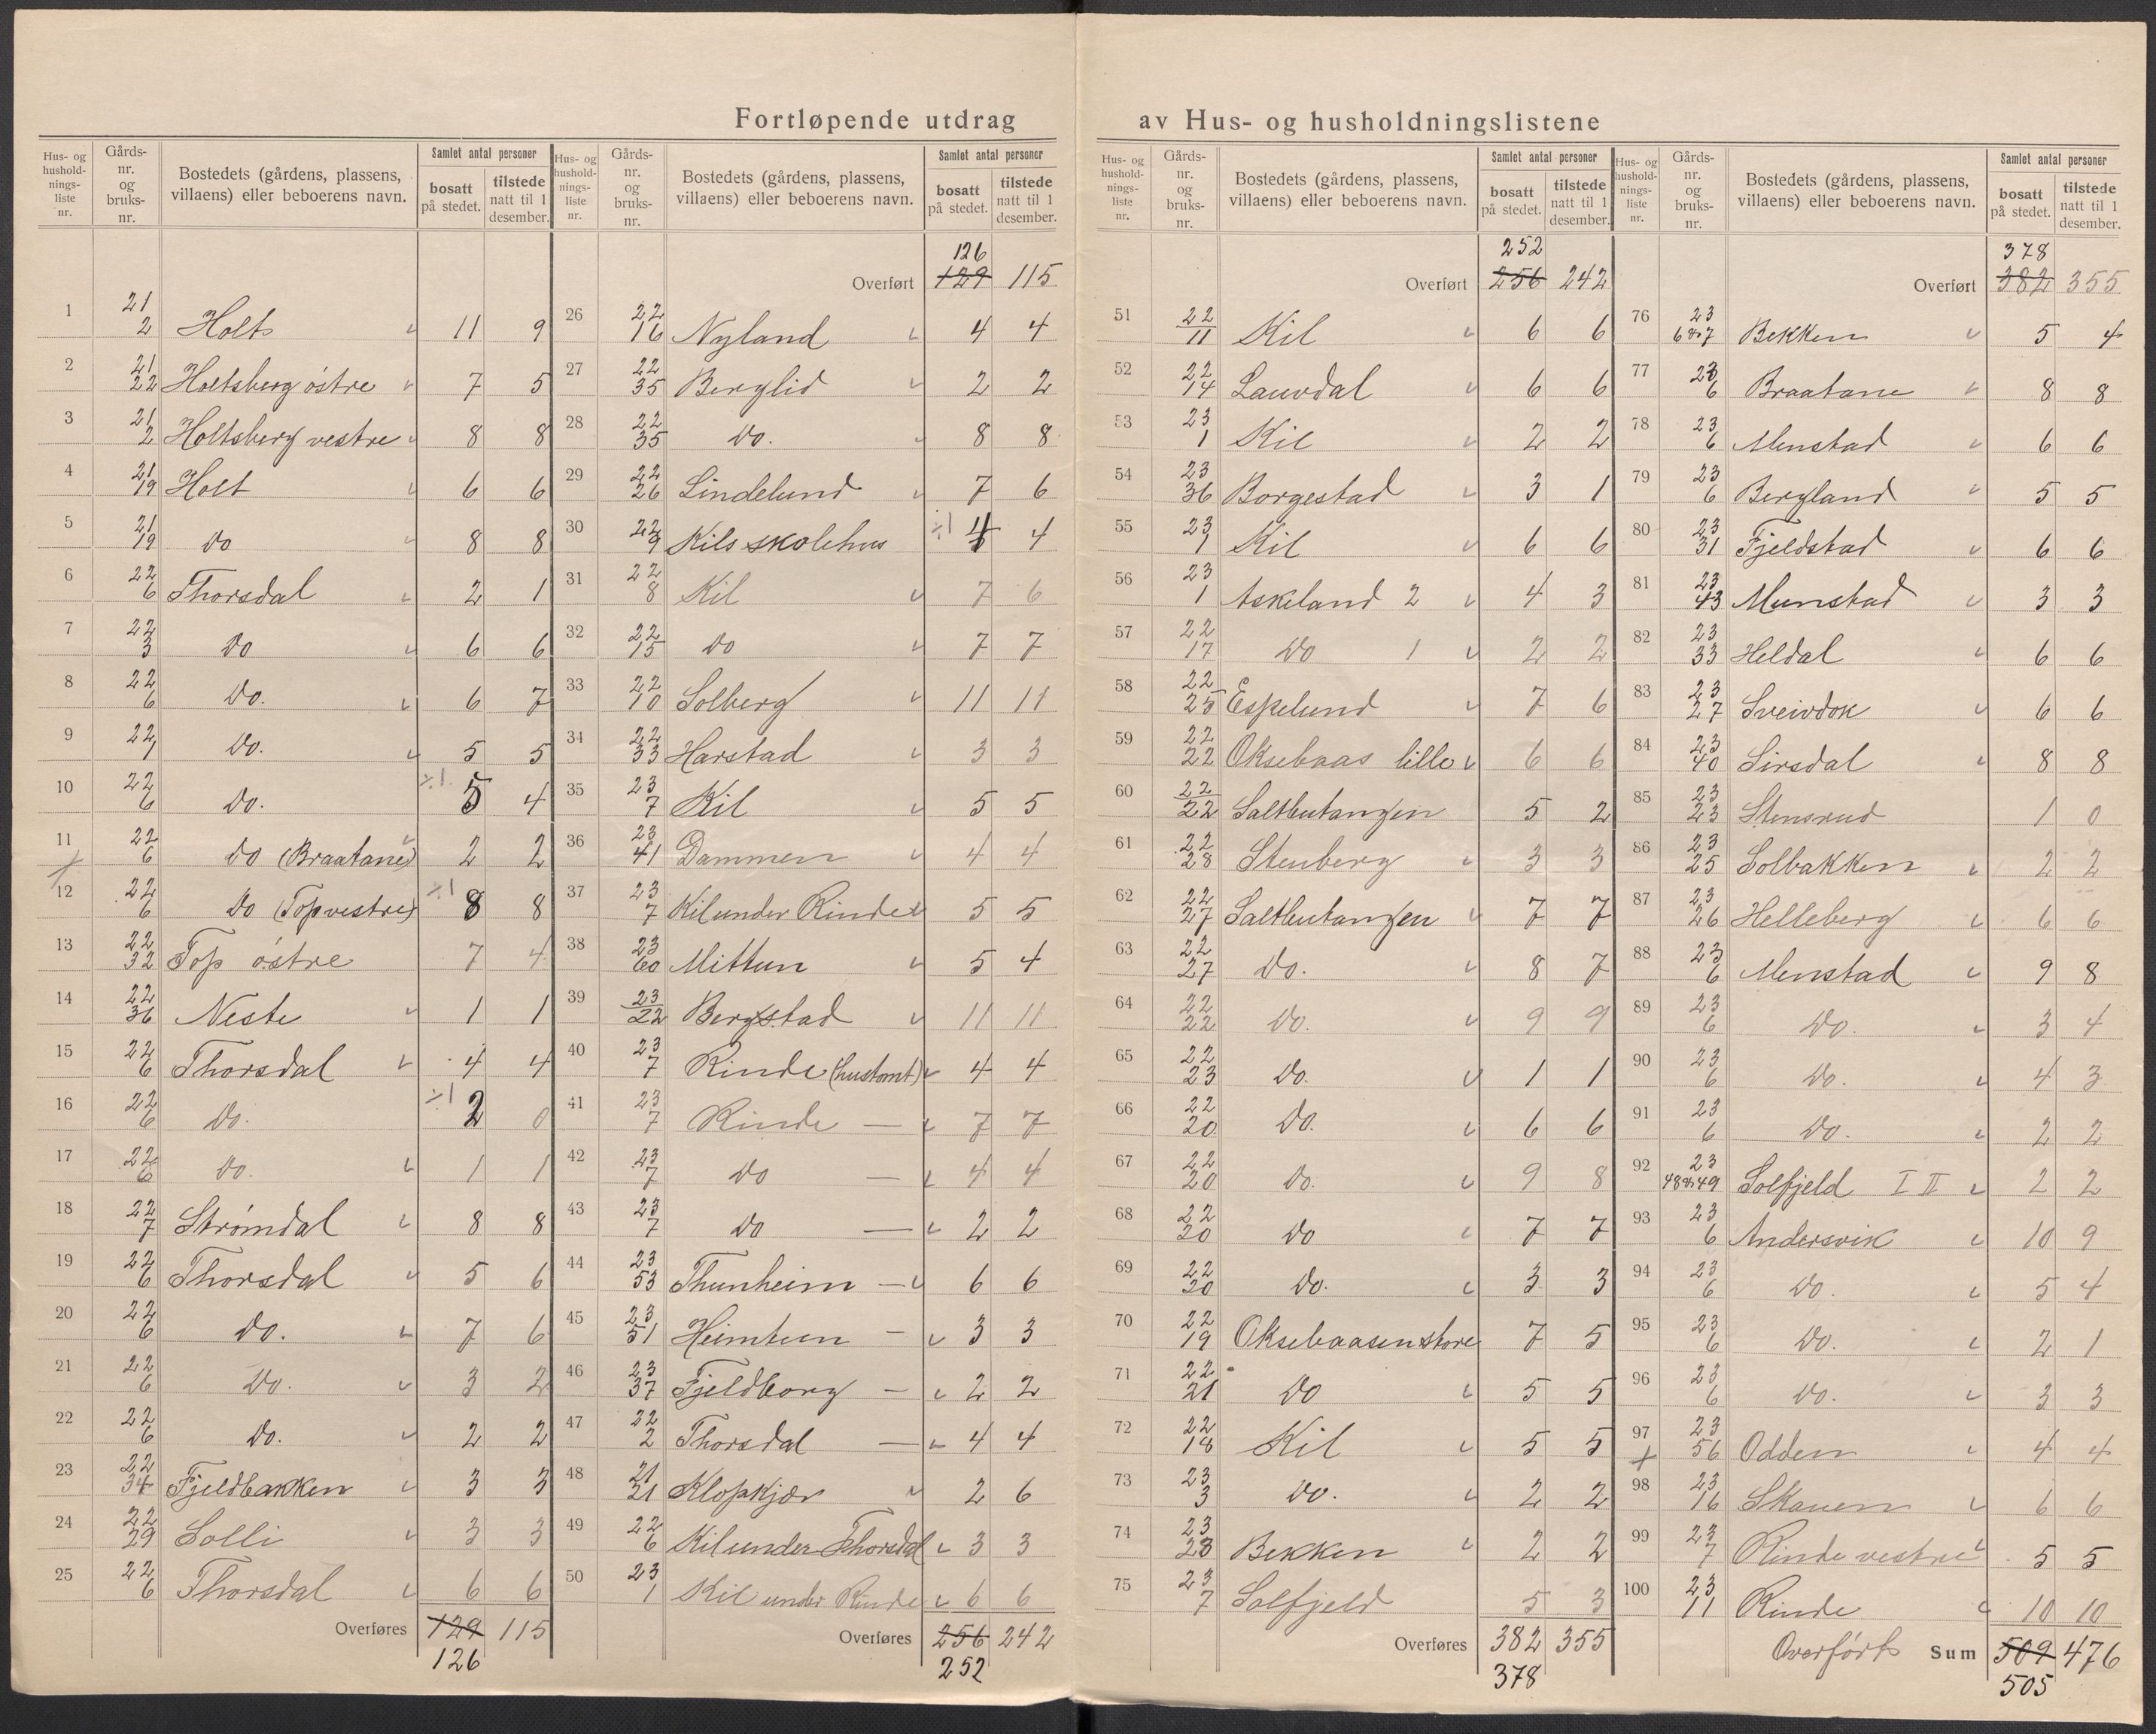 Fortløpende utdrag av Hus- og husholdningslistene
Hus- og hushold-nings-liste nr. | Gårds-nr. og bruks-nr. | Bostedets (gårdens, plassens, villaens) eller beboerens navn. | Samlet antal personer | bosatt på stedet. | tilstede natt til 1 desember.
1 21/2 Holt 11 9
2 21/22 Holtsberg østre 7 5
3 21/2 Holtsberg vestre 8 8
4 21/19 Holt 6 6
5 21/19 do 8 8
6 22/6 Thorsdal 2 1
7 22/3 do 6 6
8 22/6 Do. 6 7
9 22/1 Do. 5 5
10 22/6 Do. ÷1 5 4
11 22/6 do (Braatane) 2 2
12 22/6 do (Top vestre) ÷1 8 8
13 22/32 Top østre 7 4
14 22/36 Neste 1 1
15 22/6 Thorsdal 4 4
16 22/6 Do. ÷1 2 0
17 22/6 Do. 1 1
18 22/7 Strømdal 8 8
19 22/6 Thorsdal 5 6
20 22/6 Do. 7 6
21 22/6 Do. 3 2
22 22/6 Do. 2 2
23 22/34 Fjeldbakken 3 3
24 22/29 Solli 3 3
25 22/6 Thorsdal 6 6
Overføres 129 115
126
Hus- og hushold-nings-liste nr. | Gårds-nr. og bruks-nr. | Bostedets (gårdens, plassens, villaens) eller beboerens navn. | Samlet antal personer | bosatt på stedet. | tilstede natt til 1 desember.
126
Overført 129 115
26 22/16 Nyland 4 4
27 22/35 Berglid 2 2
28 22/35 Do. 8 8
29 22/26 Lindelund 7 6
30 22/9 Kils skolehus ÷1 4 4
31 22/8 Kil 7 6
32 22/15 Do 7 7
33 22/10 Solberg 11 11
34 22/33 Harstad 3 3
35 23/7 Kil 5 5
36 23/41 Dammen 4 4
37 23/7 Kil under Rinde 5 5
38 23/60 Mittun 5 4
39 23/22 Bergstad 11 11
40 23/7 Rinde (hustomt) 4 4
41 23/7 Rinde — 7 7
42 23/7 Do — 4 4
43 23/7 Do — 2 2
44 23/53 Thunheim — 6 6
45 23/51 Heimtun — 3 3
46 23/37 Fjeldborg — 2 2
47 22/2 Thorsdal — 4 4
48 21/21 Klopkjær 2 6
49 22/6 Kil under Thorsdal 3 3
50 23/1 Kil under Rinde 6 6
Overføres 256 242
252
Hus- og hushold-nings-liste nr. | Gårds-nr. og bruks-nr. | Bostedets (gårdens, plassens, villaens) eller beboerens navn. | Samlet antal personer | bosatt på stedet. | tilstede natt til 1 desember.
252
Overført 256 242
51 22/11 Kil 6 6
52 22/14 Lauvdal 6 6
53 23/1 Kil 2 2
54 23/36 Borgestad 3 1
55 23/1 Kil 6 6
56 23/1 Askeland 2 4 3
57 22/17 Do 1 2 2
58 22/25 Espelund 7 6
59 22/22 Oksebaas lille 6 6
60 22/22 Saltbutangen 5 2
61 22/28 Stenberg 3 3
62 22/27 Saltbutangen 7 7
63 22/27 Do. 8 7
64 22/22 Do. 9 9
65 22/23 Do. 1 1
66 22/20 Do. 6 6
67 22/20 Do. 9 8
68 22/20 Do 7 7
69 22/20 Do. 3 3
70 22/19 Oksebaasen store 7 5
71 22/21 Do 5 5
72 22/18 Kil 5 5
73 23/3 Do. 2 2
74 23/28 Bekken 2 2
75 23/7 Solfjeld 5 3
Overføres 382 355
378
Hus- og hushold-nings-liste nr. | Gårds-nr. og bruks-nr. | Bostedets (gårdens, plassens, villaens) eller beboerens navn. | Samlet antal personer | bosatt på stedet. | tilstede natt til 1 desember.
378
Overført 382 355
76 23/6 og 7 Bekken 5 4
77 23/6 Braatane 8 8
78 23/6 Menstad 6 6
79 23/6 Bergland 5 5
80 23/31 Fjeldstad 6 6
81 23/43 Menstad 3 3
82 23/33 Heldal 6 6
83 23/27 Sveivdok 6 6
84 23/40 Sirsdal 8 8
85 23/23 Stensrud 1 0
86 23/25 Solbakken 2 2
87 23/26 Helleberg 6 6
88 23/6 Menstad 9 8
89 23/6 Do. 3 4
90 23/6 Do. 4 3
91 23/6 Do. 2 2
92 23/48 og 49 Solfjeld I II 2 2
93 23/6 Andersvik 10 9
94 23/6 Do. 5 4
95 23/6 Do. 2 1
96 23/6 Do. 3 3
97 23/56 Odden 4 4
98 23/16 Skauen 6 6
99 23/7 Rinde vestre 5 5
100 23/11 Rinde 10 10
Overført Sum 509 476
505